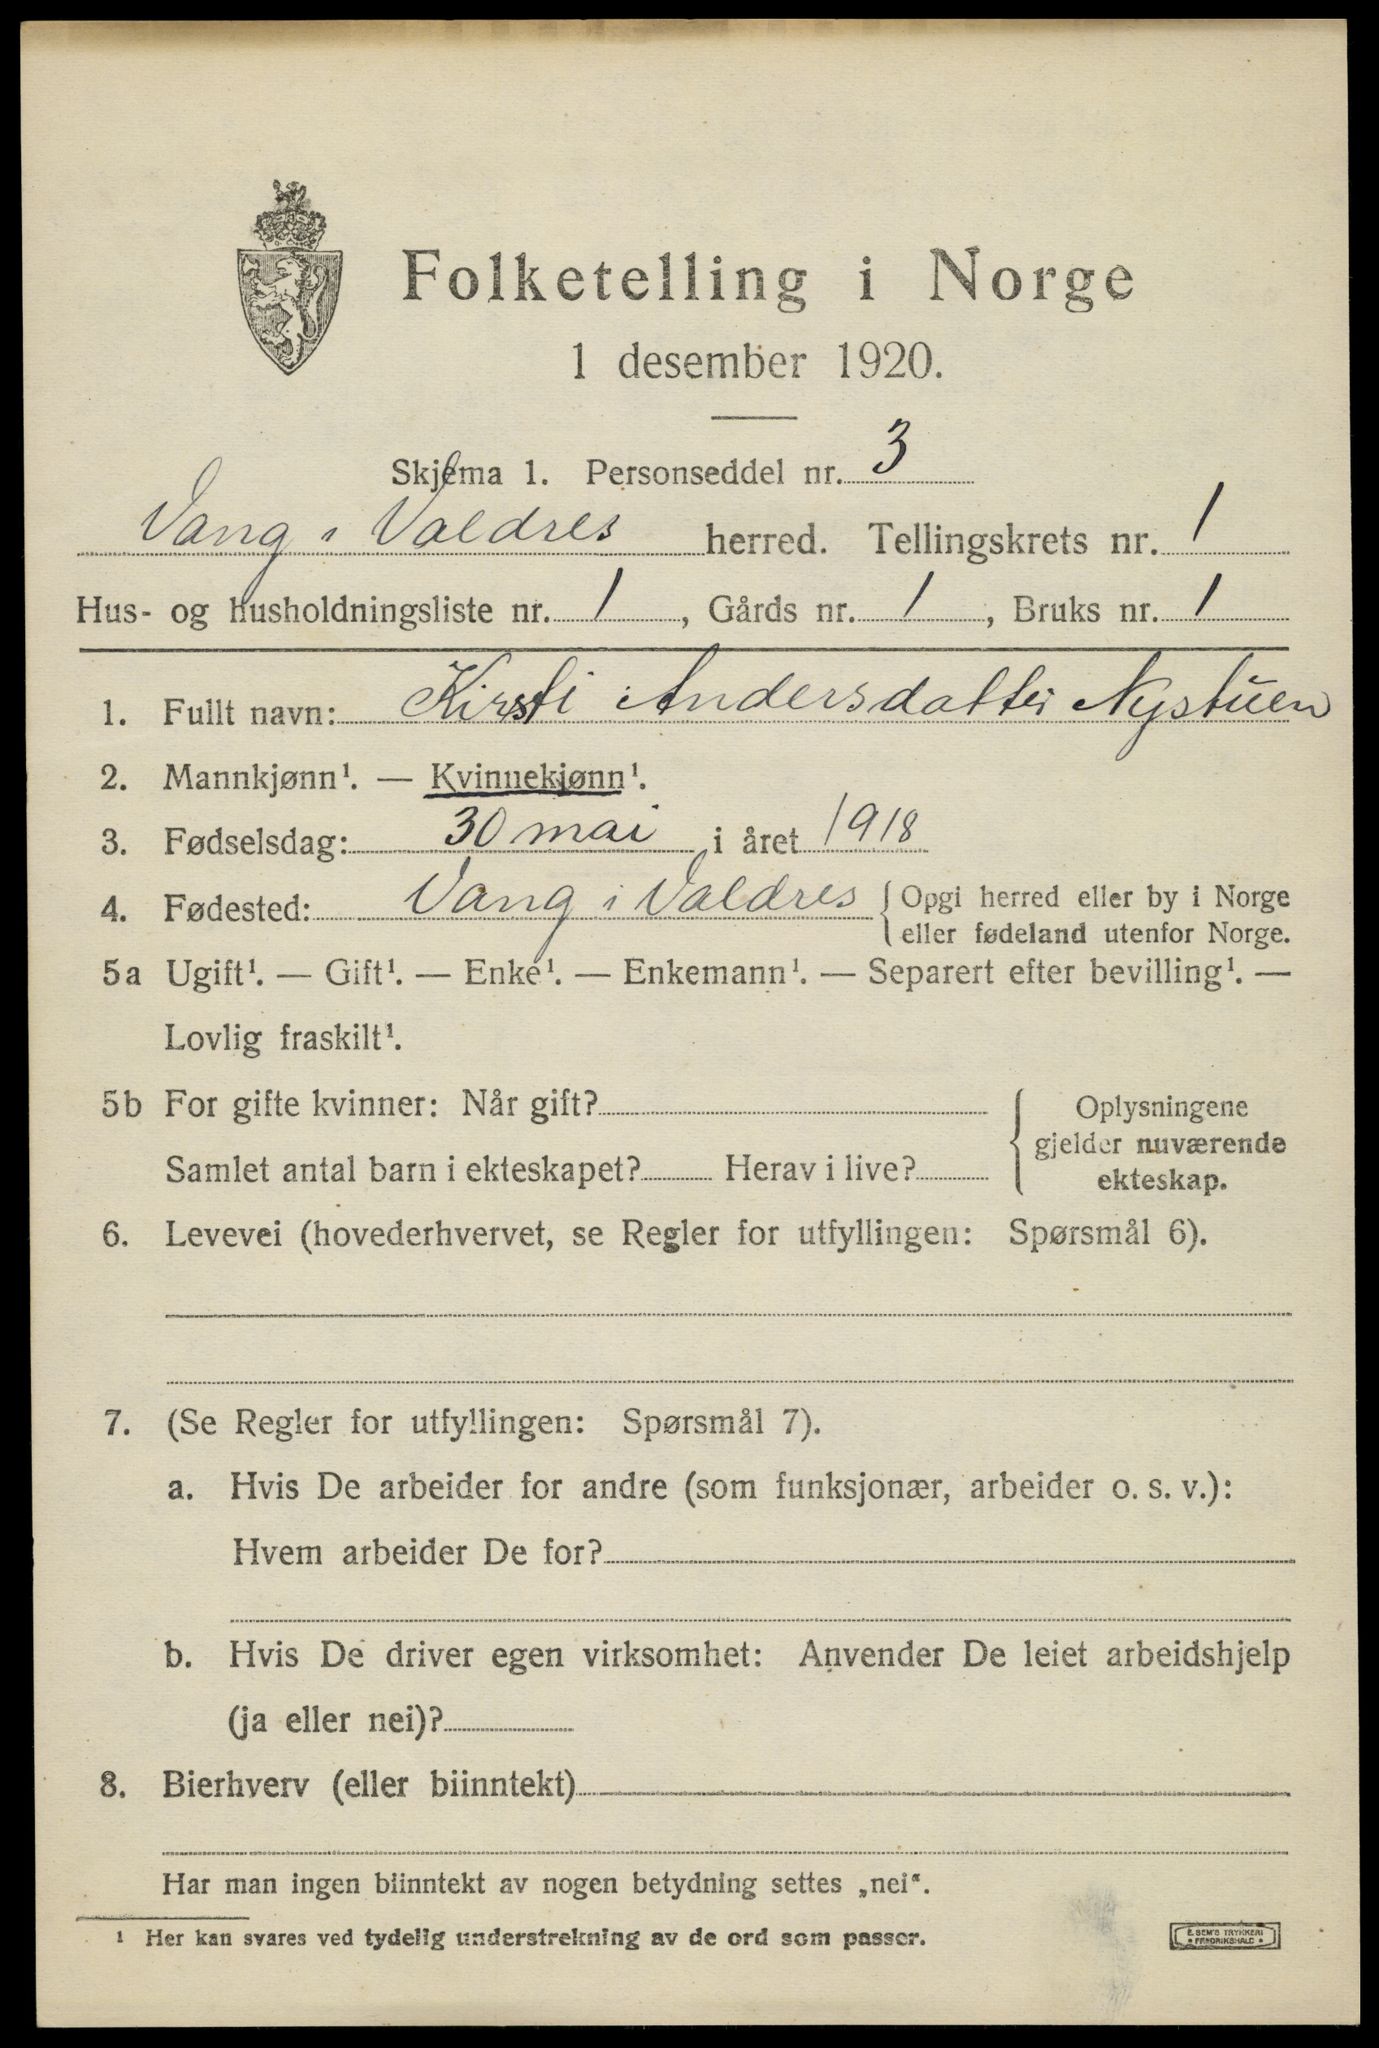 Folketelling i Norge
1 desember 1920.
Skjema 1. Personseddel nr. 3
Vang i Valdres herred. Tellingskrets nr. 1
Hus- og husholdningsliste nr. 1, Gårds nr. 1, Bruks nr. 1
1. Fullt navn: Kirsti Andersdatter Nystuen
2. Mannkjønn¹. — Kvinnekjønn¹.
3. Fødselsdag: 30 mai i året 1918
4. Fødested: Vang i Valdres { Opgi herred eller by i Norge
eller fødeland utenfor Norge.
5a Ugift¹. — Gift¹. — Enke¹. — Enkemann¹. — Separert efter bevilling¹. —
Lovlig fraskilt¹.
5b For gifte kvinner: Når gift?
Samlet antal barn i ekteskapet? Herav i live?
Oplysningene
gjelder nuværende
ekteskap.
6. Levevei (hovederhvervet, se Regler for utfyllingen: Spørsmål 6).
7. (Se Regler for utfyllingen: Spørsmål 7).
a. Hvis De arbeider for andre (som funksjonær, arbeider o. s. v.):
Hvem arbeider De for?
b. Hvis De driver egen virksomhet: Anvender De leiet arbeidshjelp
(ja eller nei)?
8. Bierhverv (eller biinntekt)
Har man ingen biinntekt av nogen betydning settes „nei“.
¹ Her kan svares ved tydelig understrekning av de ord som passer.
E. SEM'S TRYKKERI
• FREDRIKSHALD •